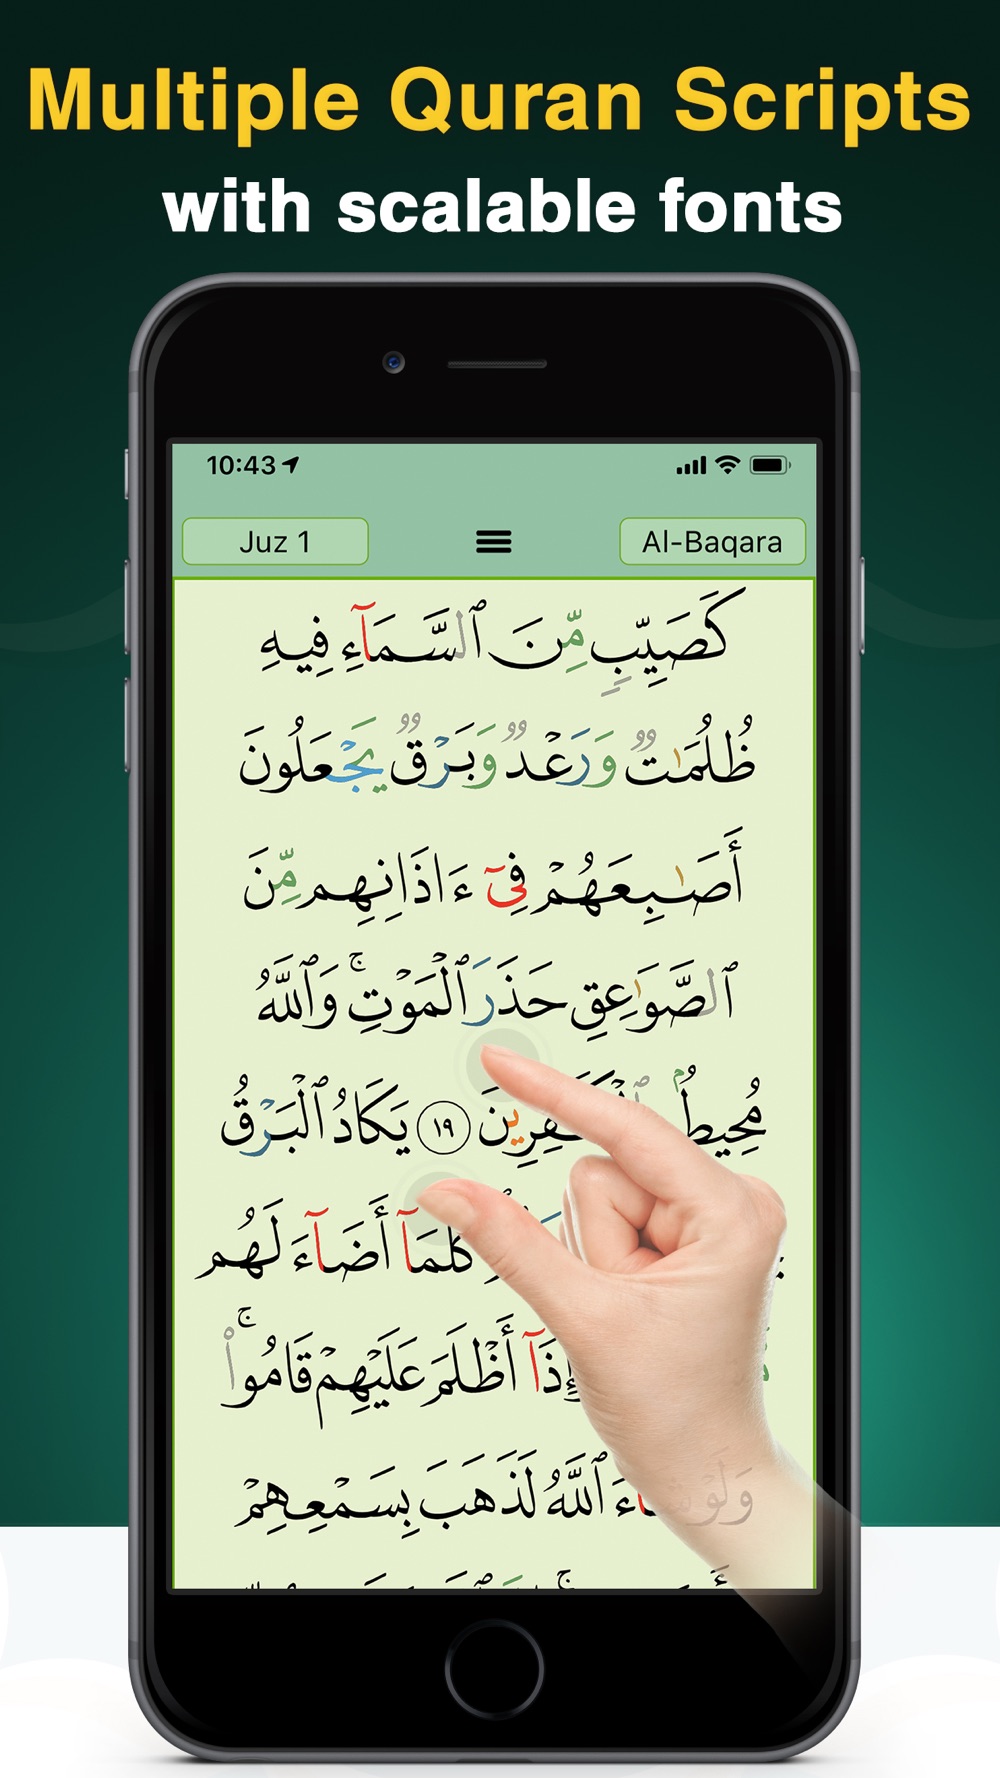 Multiple Quran Scripts
with scalable fonts
10:43
Juz 1
Al-Baqara
كَصَيِّبٍ مِّنَ ٱلسَّمَآءِ فِيهِ
ظُلُمَٰتٌ وَرَعْدٌ وَبَرْقٌ يَجْعَلُونَ
أَصَٰبِعَهُمْ فِىٓ ءَاذَانِهِم مِّنَ
ٱلصَّوَٰعِقِ حَذَرَ ٱلْمَوْتِ ۚ وَٱللَّهُ
مُحِيطٌۢ يَكَادُ ٱلْبَرْقُ ١٩
كُلَّمَآ أَضَآءَ لَهُم
إِذَآ أَظْلَمَ عَلَيْهِمْ قَامُوا۟ ۚ
وَلَوْ شَآءَ ٱللَّهُ لَذَهَبَ بِسَمْعِهِمْ